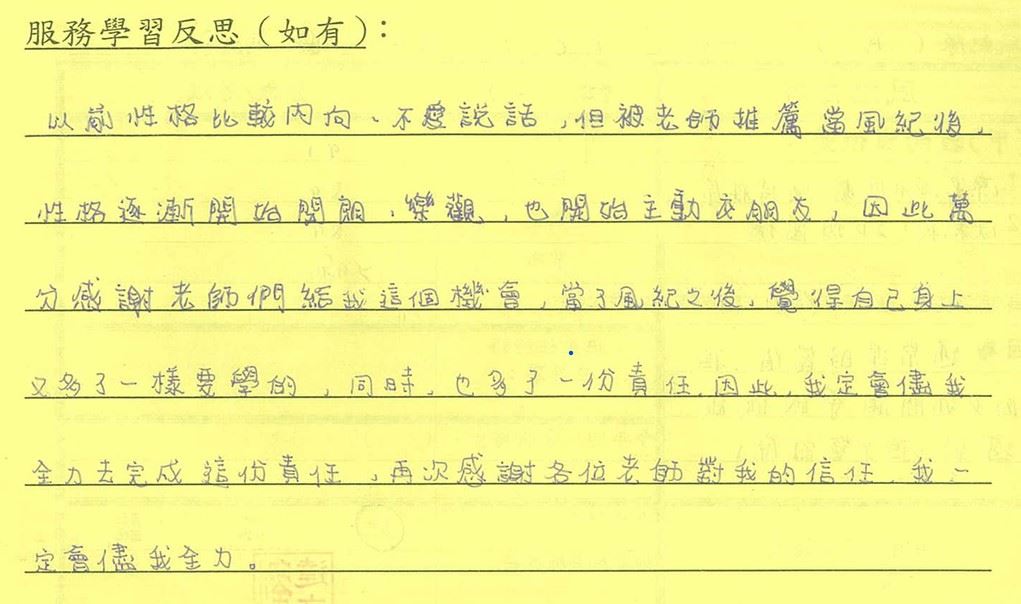 服務學習反思（如有）：
以前性格比較內向、不愛說話，但被老師推薦當風紀後，
性格逐漸開始開朗、樂觀，也開始主動交朋友，因此萬
分感謝老師們給我這個機會，當了風紀之後，覺得自己身上
又多了一樣要學的，同時，也多了一份責任，因此，我定會儘我
全力去完成這份責任，再次感謝各位老師對我的信任，我一
定會儘我全力。